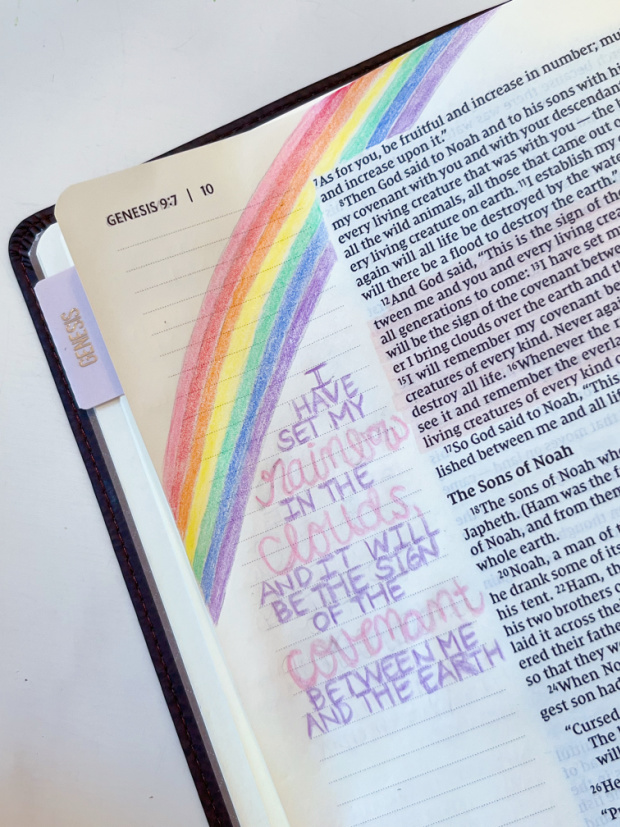 GENESIS 9:7 | 10
GENESIS
I
HAVE
SET MY
rainbow
IN THE
clouds,
AND IT WILL
BE THE SIGN
OF THE
covenant
BETWEEN ME
AND THE EARTH
7As for you, be fruitful and increase in number; mu
and increase upon it.”
8Then God said to Noah and to his sons with hi
my covenant with you and with your descendan
every living creature that was with you — the b
all the wild animals, all those that came out o
ery living creature on earth. 11I establish my
again will all life be destroyed by the wate
will there be a flood to destroy the earth.”
12And God said, “This is the sign of the
tween me and you and every living crea
all generations to come: 13I have set m
will be the sign of the covenant betwe
er I bring clouds over the earth and th
15I will remember my covenant be
creatures of every kind. Never agai
destroy all life. 16Whenever the r
see it and remember the everla
living creatures of every kind o
17So God said to Noah, “This
lished between me and all lif
The Sons of Noah
18The sons of Noah who
Japheth. (Ham was the f
of Noah, and from them
whole earth.
20Noah, a man of t
he drank some of its
his tent. 22Ham, th
his two brothers o
laid it across the
ered their fathe
so that they w
24When No
gest son had
“Cursed
The
will
26He